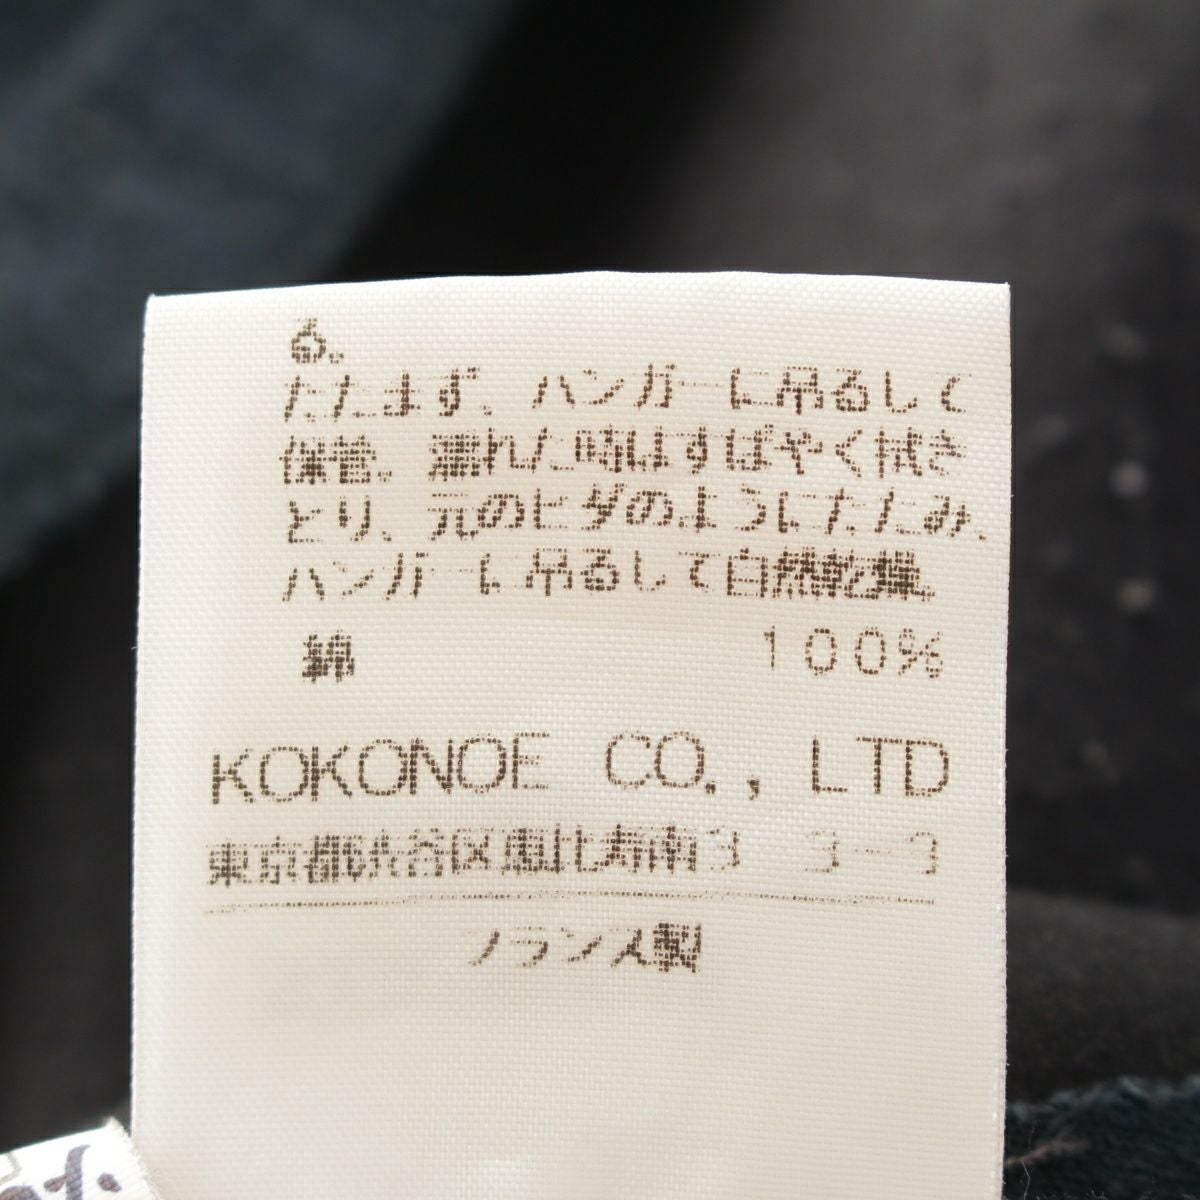 る。
たたまず、ハンガーに吊るして
保管。濡れた時はすばやく拭き
とり、元のヒダのようにたたみ、
ハンガーに吊るして自然乾燥。
綿 100%
KOKONOE CO., LTD
東京都渋谷区恵比寿南3-3-3
フランス製